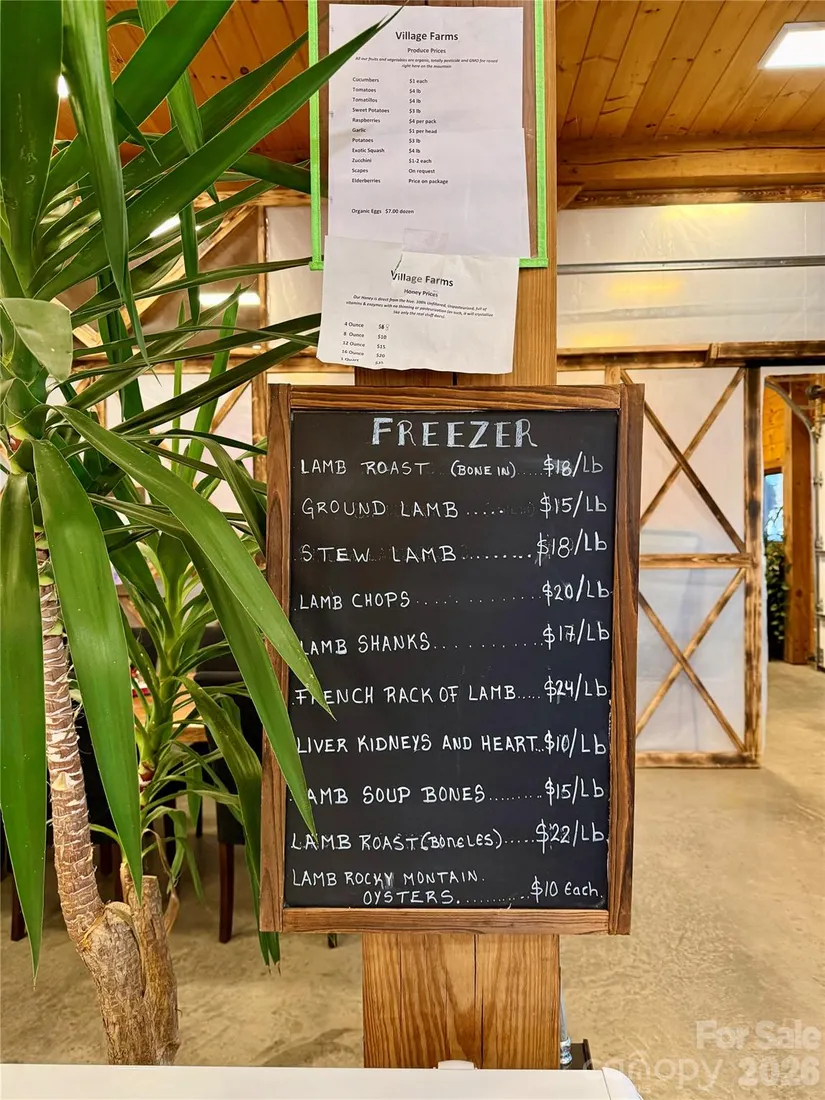 Village Farms
Produce Prices
All our fruits and vegetables are organic, totally pesticide and GMO free raised
right here on the mountain
Cucumbers $1 each
Tomatoes $4 lb
Tomatillos $4 lb
Sweet Potatoes $3 lb
Raspberries $4 per pack
Garlic $1 per head
Potatoes $3 lb
Exotic Squash $4 lb
Zucchini $1-2 each
Scapes On request
Elderberries Price on package
Organic Eggs $7.00 dozen
Village Farms
Honey Prices
Our Honey is direct from the hive, 100% Unfiltered, Unpasteurized, full of
vitamins & enzymes with no thinning or pasteurization
4 Ounce $6
8 Ounce $10
12 Ounce $15
16 Ounce $20
FREEZER
LAMB ROAST (BONE IN)...$18/Lb
GROUND LAMB.....$15/Lb
STEW LAMB........$18/Lb
LAMB CHOPS..........$20/Lb
LAMB SHANKS..........$17/Lb
FRENCH RACK OF LAMB.....$24/Lb
LIVER KIDNEYS AND HEART..$10/Lb
LAMB SOUP BONES.........$15/Lb
LAMB ROAST(BONELES).....$22/Lb
LAMB ROCKY MONTAIN.
OYSTERS..........$10 Each.
For Sale
canopy 2026